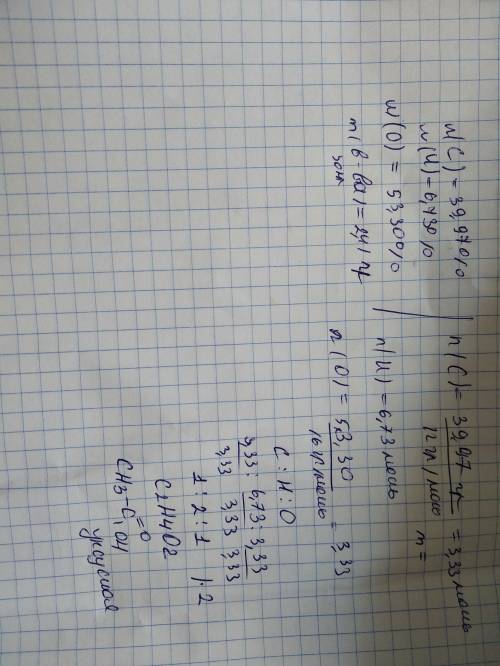 w(C) = 39,97%
w(H) = 6,73%
w(O) = 53,30%
m(в-ва) = 2,41 гр
n(C) = 39,97 гр / 12 гр/моль = 3,33 моль
m =
n(H) = 6,73 моль
n(O) = 53,30 / 16 гр/моль = 3,33
C : H : O
3,33 : 6,73 : 3,33
3,33 3,33 3,33
1 : 2 : 1 | · 2
C2H4O2
CH3-C=O
OH
уксусная